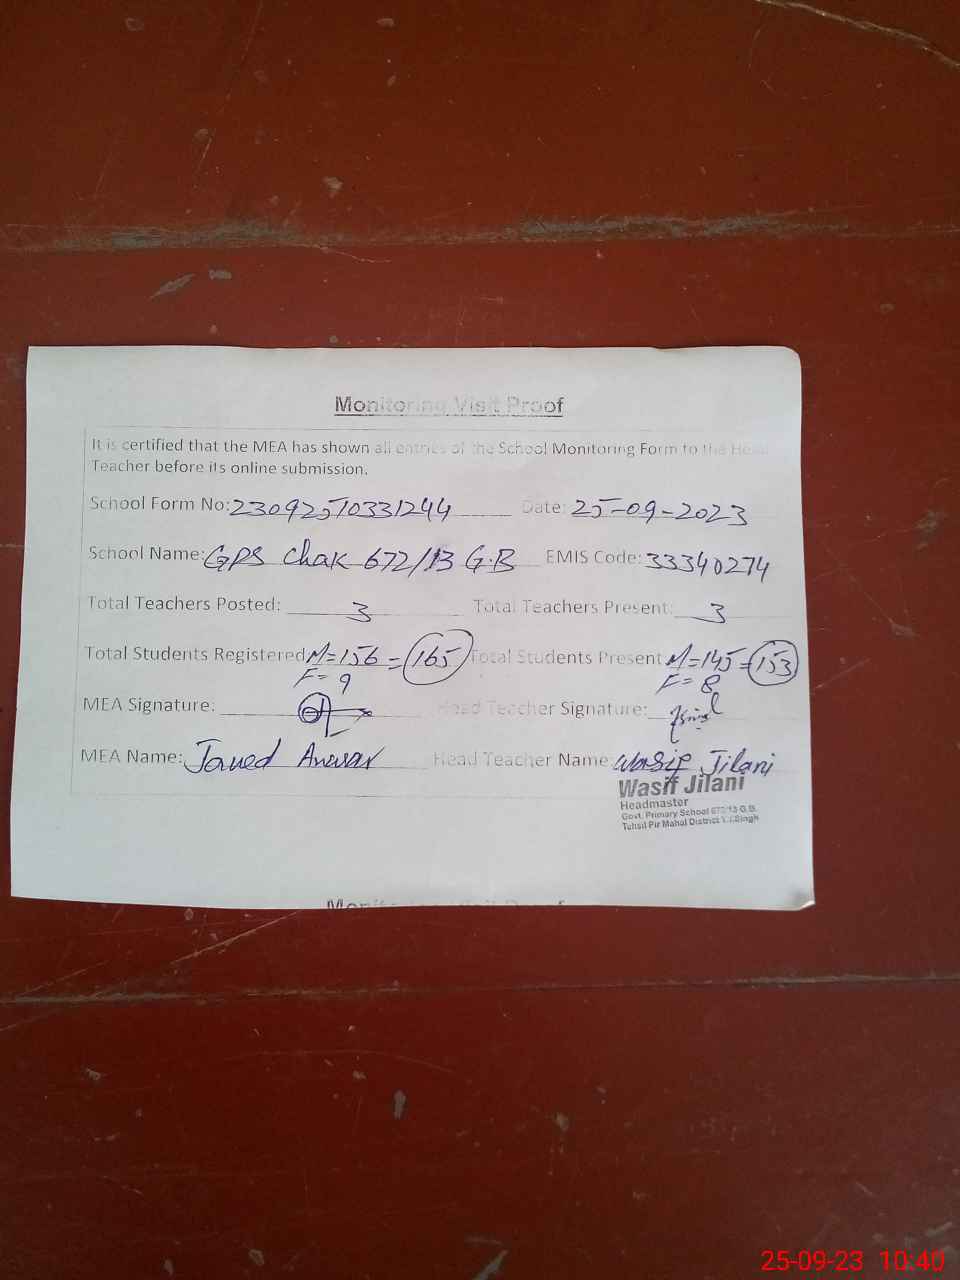 Monitoring Visit Proof
It is certified that the MEA has shown all entries of the School Monitoring Form to the Head
Teacher before its online submission.
School Form No: 23092510331244 Date: 25-09-2023
School Name: GPS Chak 672/13 G.B EMIS Code: 33340274
Total Teachers Posted: 3 Total Teachers Present: 3
Total Students Registered M=156 = 165 Total Students Present M=145 = 153
F= 9 F= 8
MEA Signature: Head Teacher Signature:
MEA Name: Javed Anwar Head Teacher Name: Wasif Jilani
Wasif Jilani
Headmaster
Govt. Primary School 672/13 G.B.
Tehsil Pir Mahal District T.T.Singh
Monitoring Visit Proof
25-09-23 10:40